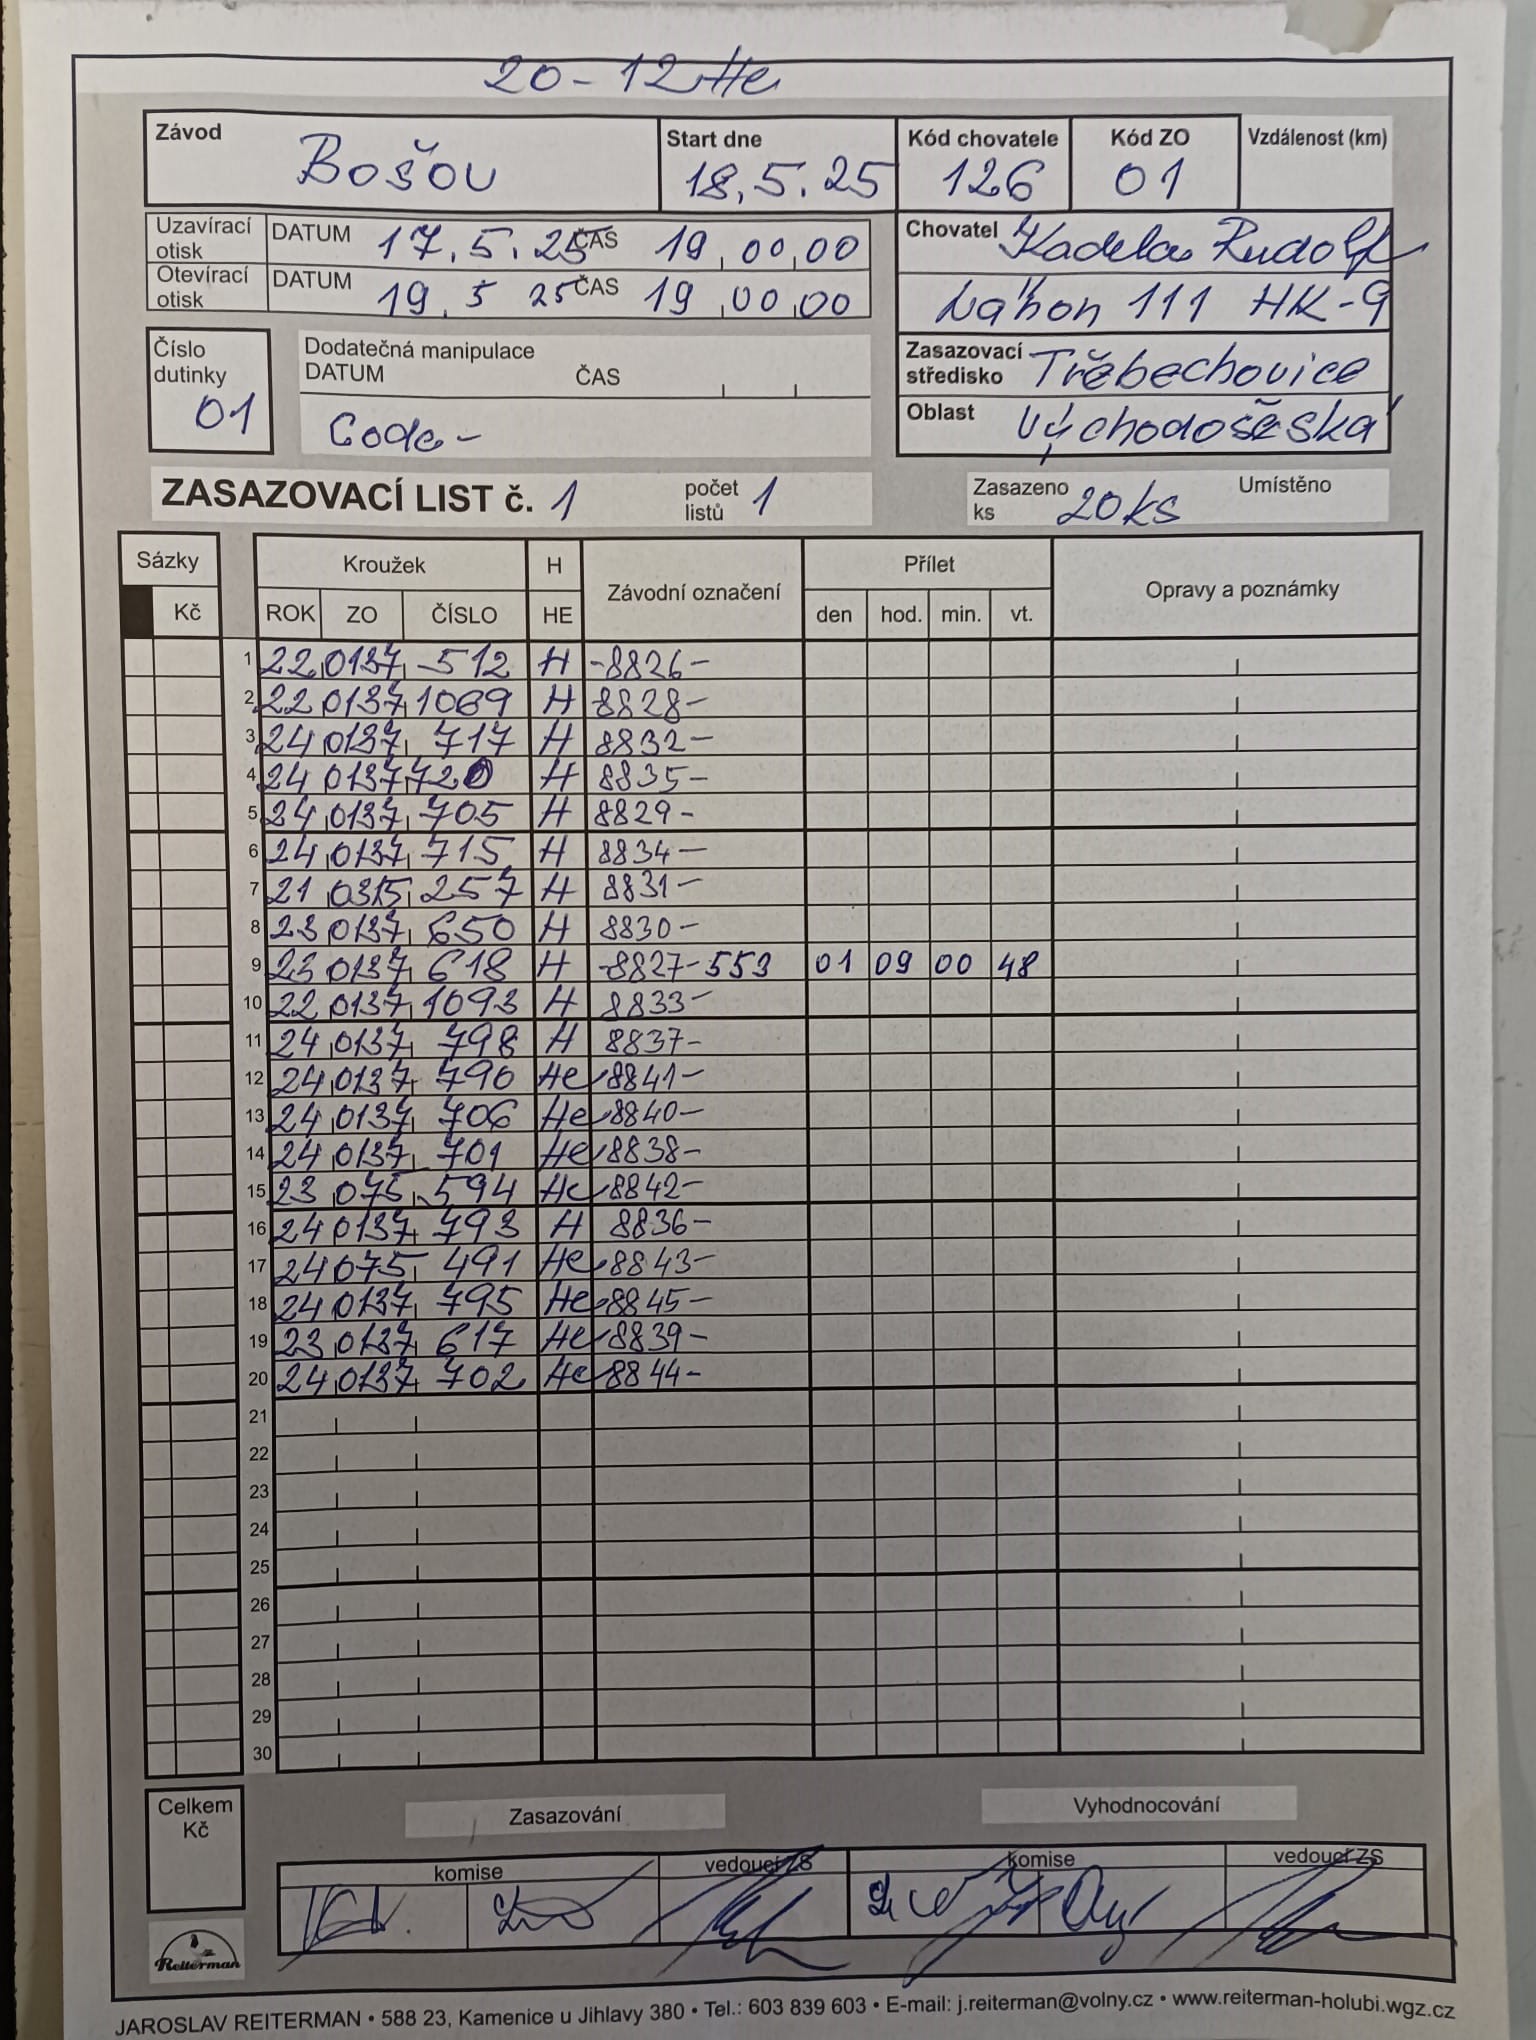 20-12He
Závod Bošov Start dne 18.5.25 Kód chovatele 126 Kód ZO 01 Vzdálenost (km)
Uzavírací otisk DATUM 17.5.25 ČAS 19,00,00
Otevírací otisk DATUM 19.5 25 ČAS 19,00,00
Chovatel Kadela Rudolf
Náhon 111 HK-9
Zasazovací středisko Třebechovice
Oblast Východočeská
Číslo dutinky 01
Dodatečná manipulace
DATUM ČAS
Code-
ZASAZOVACÍ LIST č. 1 počet listů 1 Zasazeno ks 20ks Umístěno
Sázky Kroužek H Závodní označení Přílet Opravy a poznámky
Kč ROK ZO ČÍSLO HE den hod. min. vt.
1 22 0137 -512 H -8826-
2 22 0137 1069 H 8828-
3 24 0137 717 H 8832-
4 24 0137 720 H 8835-
5 24 0137 705 H 8829-
6 24 0137 715 H 8834-
7 21 0315 257 H 8831-
8 23 0137 650 H 8830-
9 23 0137 618 H -8827-553 01 09 00 48
10 22 0137 1093 H 8833-
11 24 0137 798 H 8837-
12 24 0137 790 He 8841-
13 24 0137 706 He 8840-
14 24 0137 701 He 8838-
15 23 075 594 He 8842-
16 24 0137 793 H 8836-
17 24 075 491 He 8843-
18 24 0137 795 He 8845-
19 23 0137 617 He 8839-
20 24 0137 702 He 8844-
21
22
23
24
25
26
27
28
29
30
Celkem Kč
Zasazování Vyhodnocování
komise vedoucí ZS komise vedoucí ZS
Reiterman
JAROSLAV REITERMAN • 588 23, Kamenice u Jihlavy 380 • Tel.: 603 839 603 • E-mail: j.reiterman@volny.cz • www.reiterman-holubi.wgz.cz